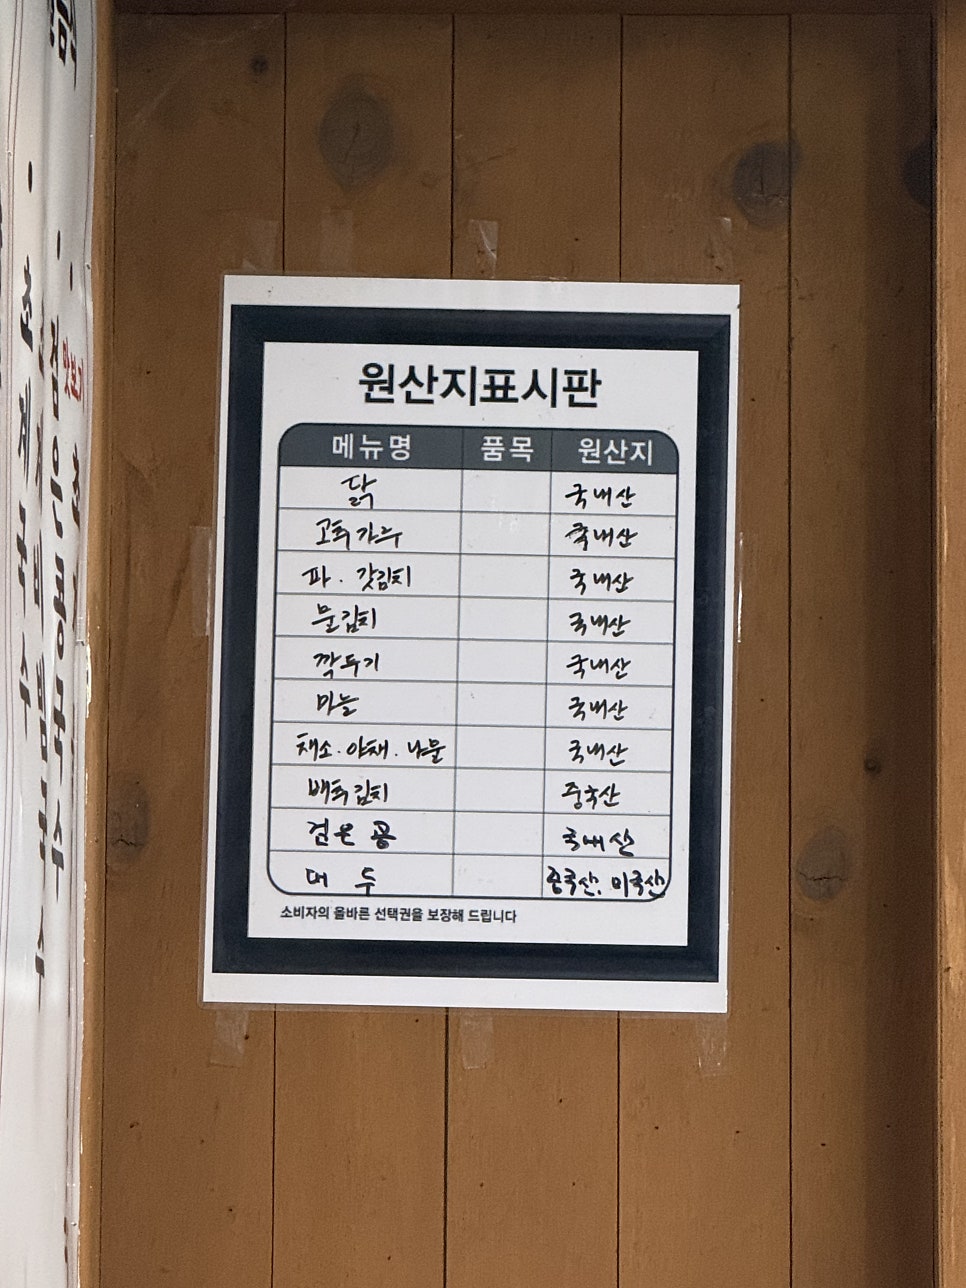 원산지표시판
메뉴명 품목 원산지
닭 국내산
고추가루 국내산
파 . 갓김치 국내산
물김치 국내산
깍두기 국내산
마늘 국내산
채소 . 야채 . 나물 국내산
배추김치 중국산
검은 콩 국내산
대 두 중국산. 미국산
소비자의 올바른 선택권을 보장해 드립니다
맛보기
· 초계국수
· 검은콩국수